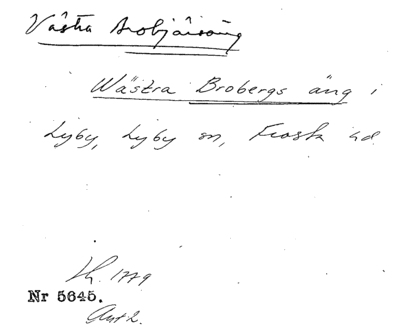 Västra Brobjärsäng
Wästra Brobergs äng i
Lyby, Lyby sn, Frosta hd
Lh. 1779
Nr 5645.